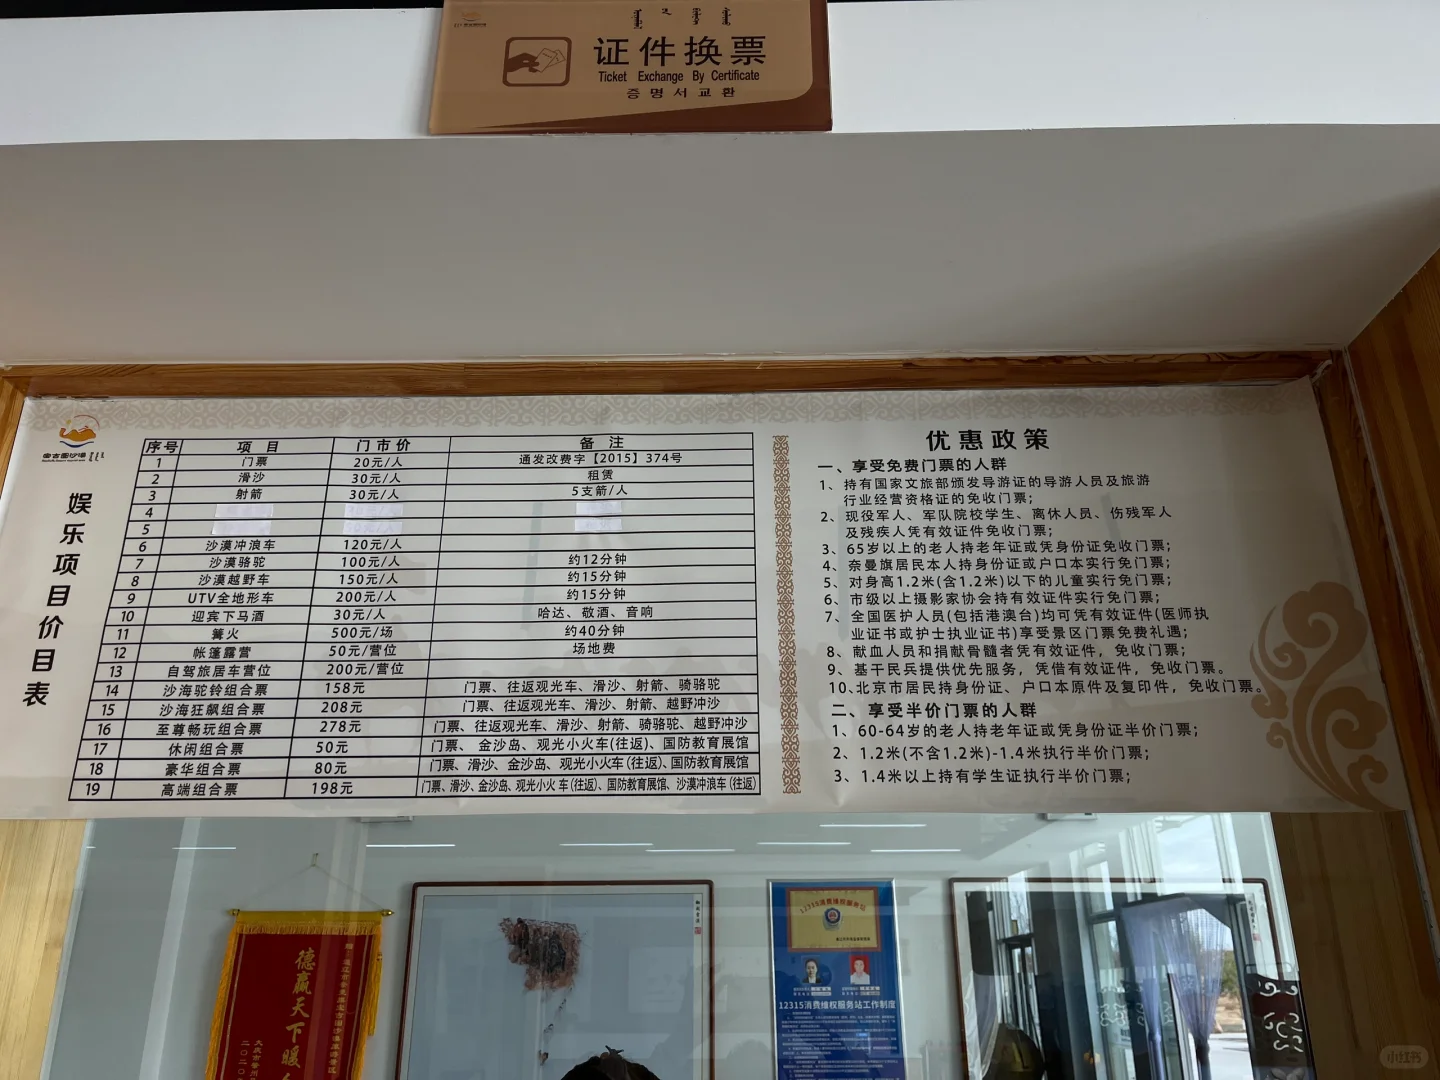 证件换票
Ticket Exchange By Certificate
증명서교환
娱乐项目价目表
序号 项目 门市价 备注
1 门票 20元/人 通发改费字【2015】374号
2 滑沙 30元/人 租赁
3 射箭 30元/人 5支箭/人
4
5
6 沙漠冲浪车 120元/人
7 沙漠骆驼 100元/人 约12分钟
8 沙漠越野车 150元/人 约15分钟
9 UTV全地形车 200元/人 约15分钟
10 迎宾下马酒 30元/人 哈达、敬酒、音响
11 篝火 500元/场 约40分钟
12 帐篷露营 50元/营位 场地费
13 自驾旅居车营位 200元/营位
14 沙海驼铃组合票 158元 门票、往返观光车、滑沙、射箭、骑骆驼
15 沙海狂飙组合票 208元 门票、往返观光车、滑沙、射箭、越野冲沙
16 至尊畅玩组合票 278元 门票、往返观光车、滑沙、射箭、骑骆驼、越野冲沙
17 休闲组合票 50元 门票、金沙岛、观光小火车(往返)、国防教育展馆
18 豪华组合票 80元 门票、滑沙、金沙岛、观光小火车(往返)、国防教育展馆
19 高端组合票 198元 门票、滑沙、金沙岛、观光小火车(往返)、国防教育展馆、沙漠冲浪车(往返)
优惠政策
一、享受免费门票的人群
1、持有国家文旅部颁发导游证的导游人员及旅游
行业经营资格证的免收门票;
2、现役军人、军队院校学生、离休人员、伤残军人
及残疾人凭有效证件免收门票;
3、65岁以上的老人持老年证或凭身份证免收门票;
4、奈曼旗居民本人持身份证或户口本实行免门票;
5、对身高1.2米(含1.2米)以下的儿童实行免门票;
6、市级以上摄影家协会持有效证件实行免门票;
7、全国医护人员(包括港澳台)均可凭有效证件(医师执
业证书或护士执业证书)享受景区门票免费礼遇;
8、献血人员和捐献骨髓者凭有效证件，免收门票;
9、基干民兵提供优先服务，凭借有效证件，免收门票。
10、北京市居民持身份证、户口本原件及复印件，免收门票。
二、享受半价门票的人群
1、60-64岁的老人持老年证或凭身份证半价门票;
2、1.2米(不含1.2米)-1.4米执行半价门票;
3、1.4米以上持有学生证执行半价门票;
德赢天下暖
12315消费维权服务站
12315消费维权服务站工作制度
小红书